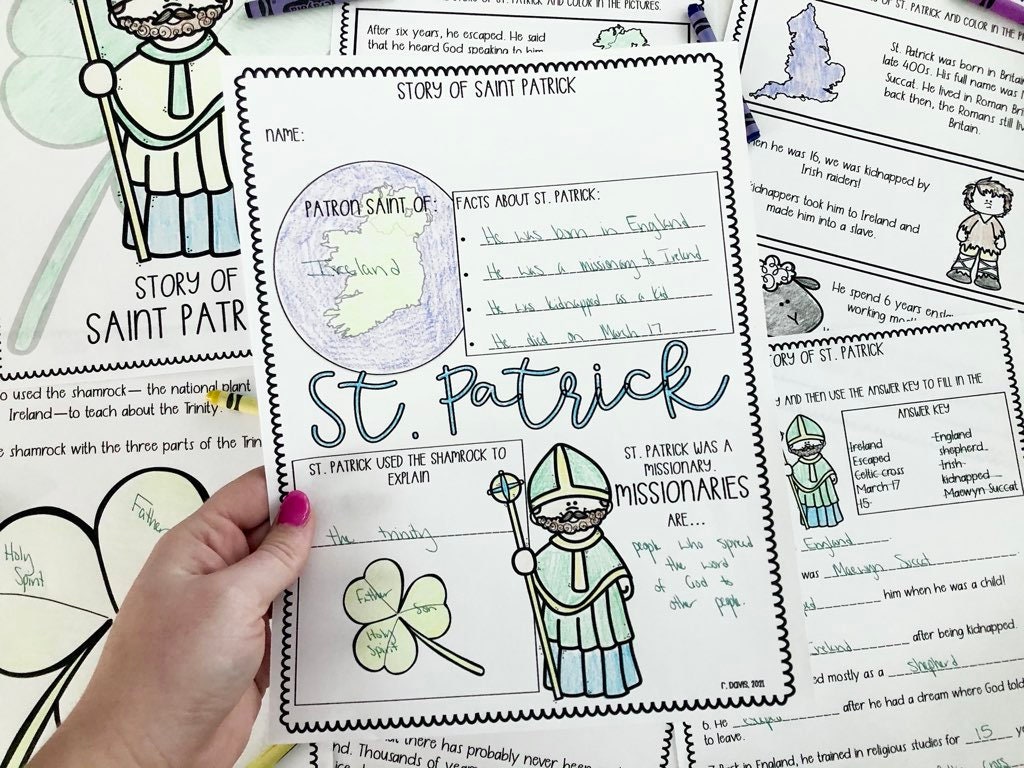 STORY OF
SAINT PATR
o used the shamrock— the national plant
Ireland—to teach about the Trinity.
e shamrock with the three parts of the Trin
Father
Holy
Spirit
After six years, he escaped. He said
that he heard God speaking to him
STORY OF SAINT PATRICK
NAME:
PATRON SAINT OF:
Ireland
FACTS ABOUT ST. PATRICK:
He was born in England
He was a missionary to Ireland
He was kidnapped as a kid
He died on March 17
St. Patrick
ST. PATRICK USED THE SHAMROCK TO
EXPLAIN
the trinity
Father
Son
Holy
Spirit
ST. PATRICK WAS A
MISSIONARY.
MISSIONARIES
ARE...
people who spread
the word
of God to
other people.
r. Davis, 2021
OF ST. PATRICK AND COLOR IN THE PICTURES.
OF ST. PATRICK AND COLOR IN THE PI
St. Patrick was born in Britain
late 400s. His full name was M
Succat. He lived in Roman Brit
back then, the Romans still liv
Britain.
en he was 16, we was kidnapped by
Irish raiders!
kidnappers took him to Ireland and
made him into a slave.
He spend 6 years ensla
working mo
TORY OF ST. PATRICK
Y AND THEN USE THE ANSWER KEY TO FILL IN THE
ANSWER KEY
Ireland
Escaped
Celtic cross
March 17
15
England
shepherd
Irish
kidnapped
Maewyn Succat
England
was Maewyn Succat
him when he was a child!
Ireland after being kidnapped.
ed mostly as a shepherd
6. He escaped after he had a dream where God told
to leave.
Back in England, he trained in religious studies for 15 ye
cross
at there has probably never been
nd. Thousands of years